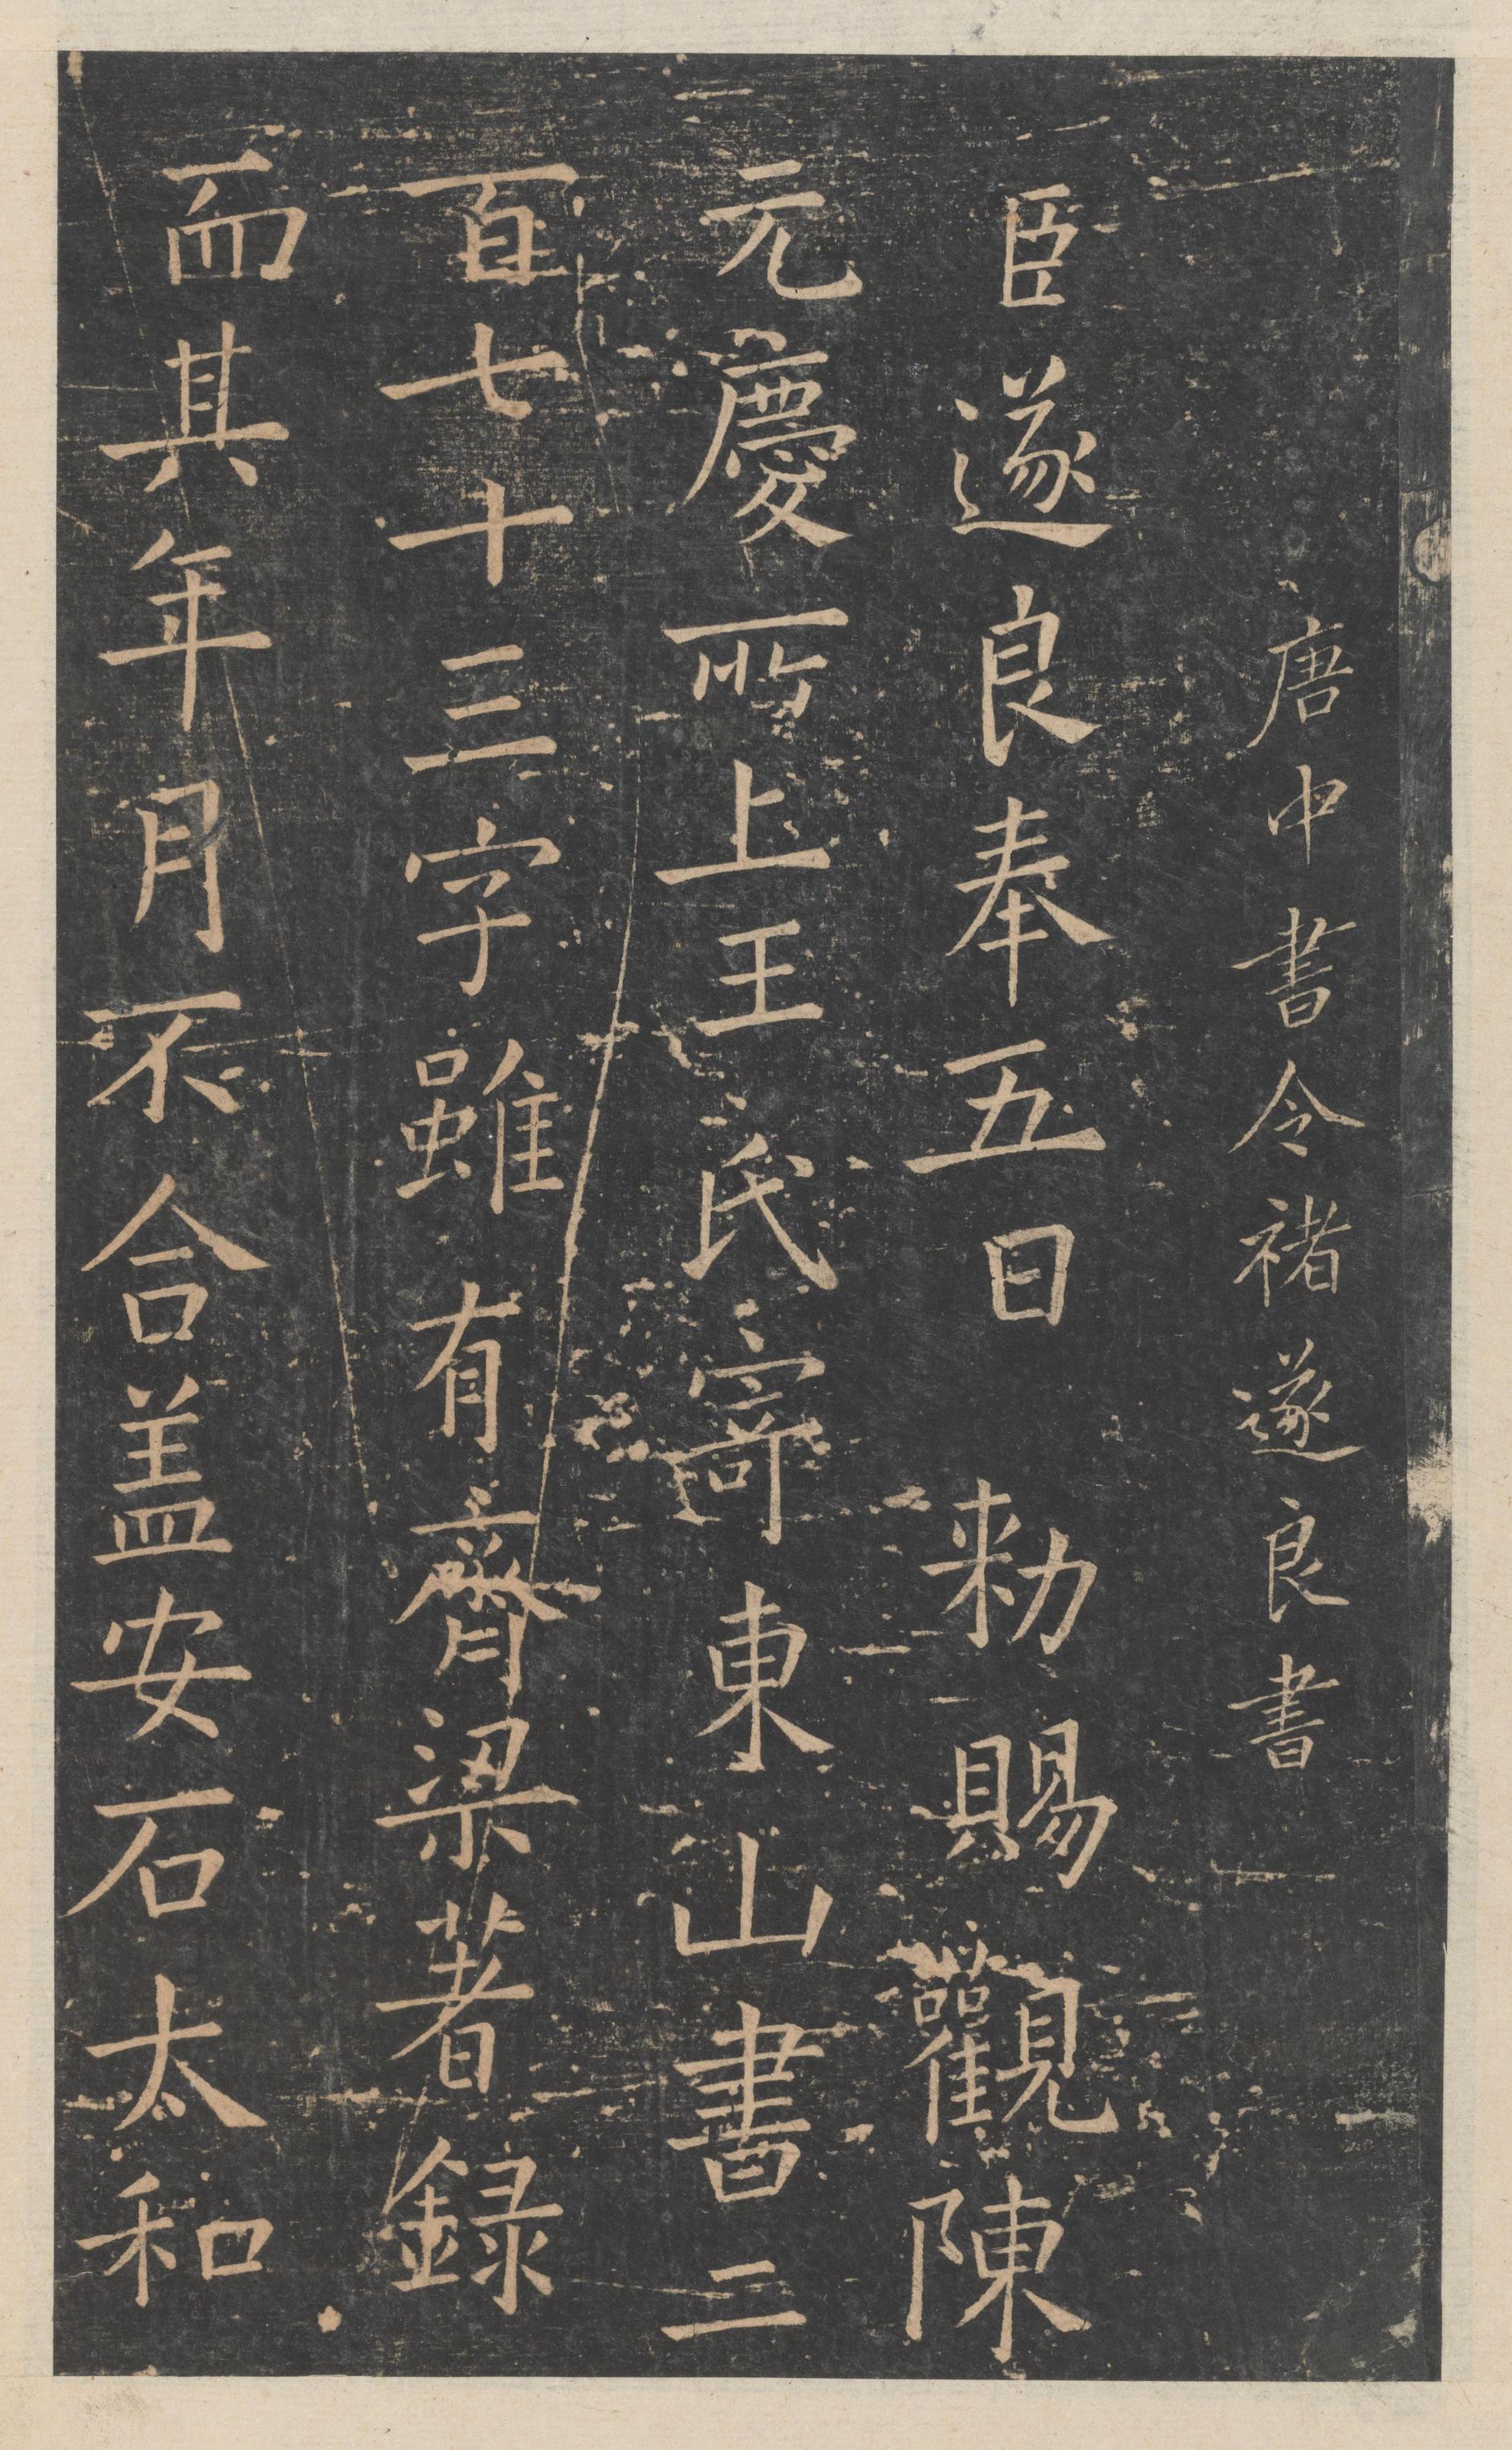 唐中書令褚遂良書
臣遂良奉五日勑賜觀陳
元慶所上王氏寄東山書二
百七十三字雖有齊梁著録
而其年月不合盖安石太和